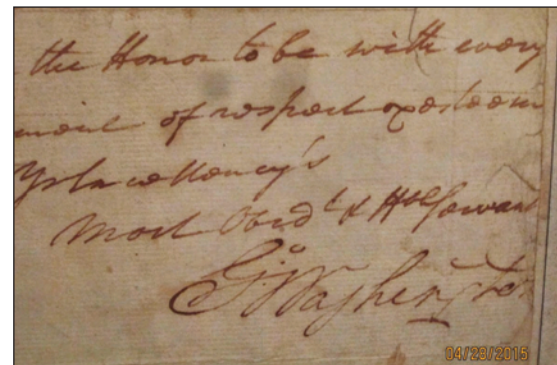 the Honor to be with every
ment of respect & esteem
Yr Excellency's
Most Obed.t & H.ble Servant
G.o Washington
04/28/2015